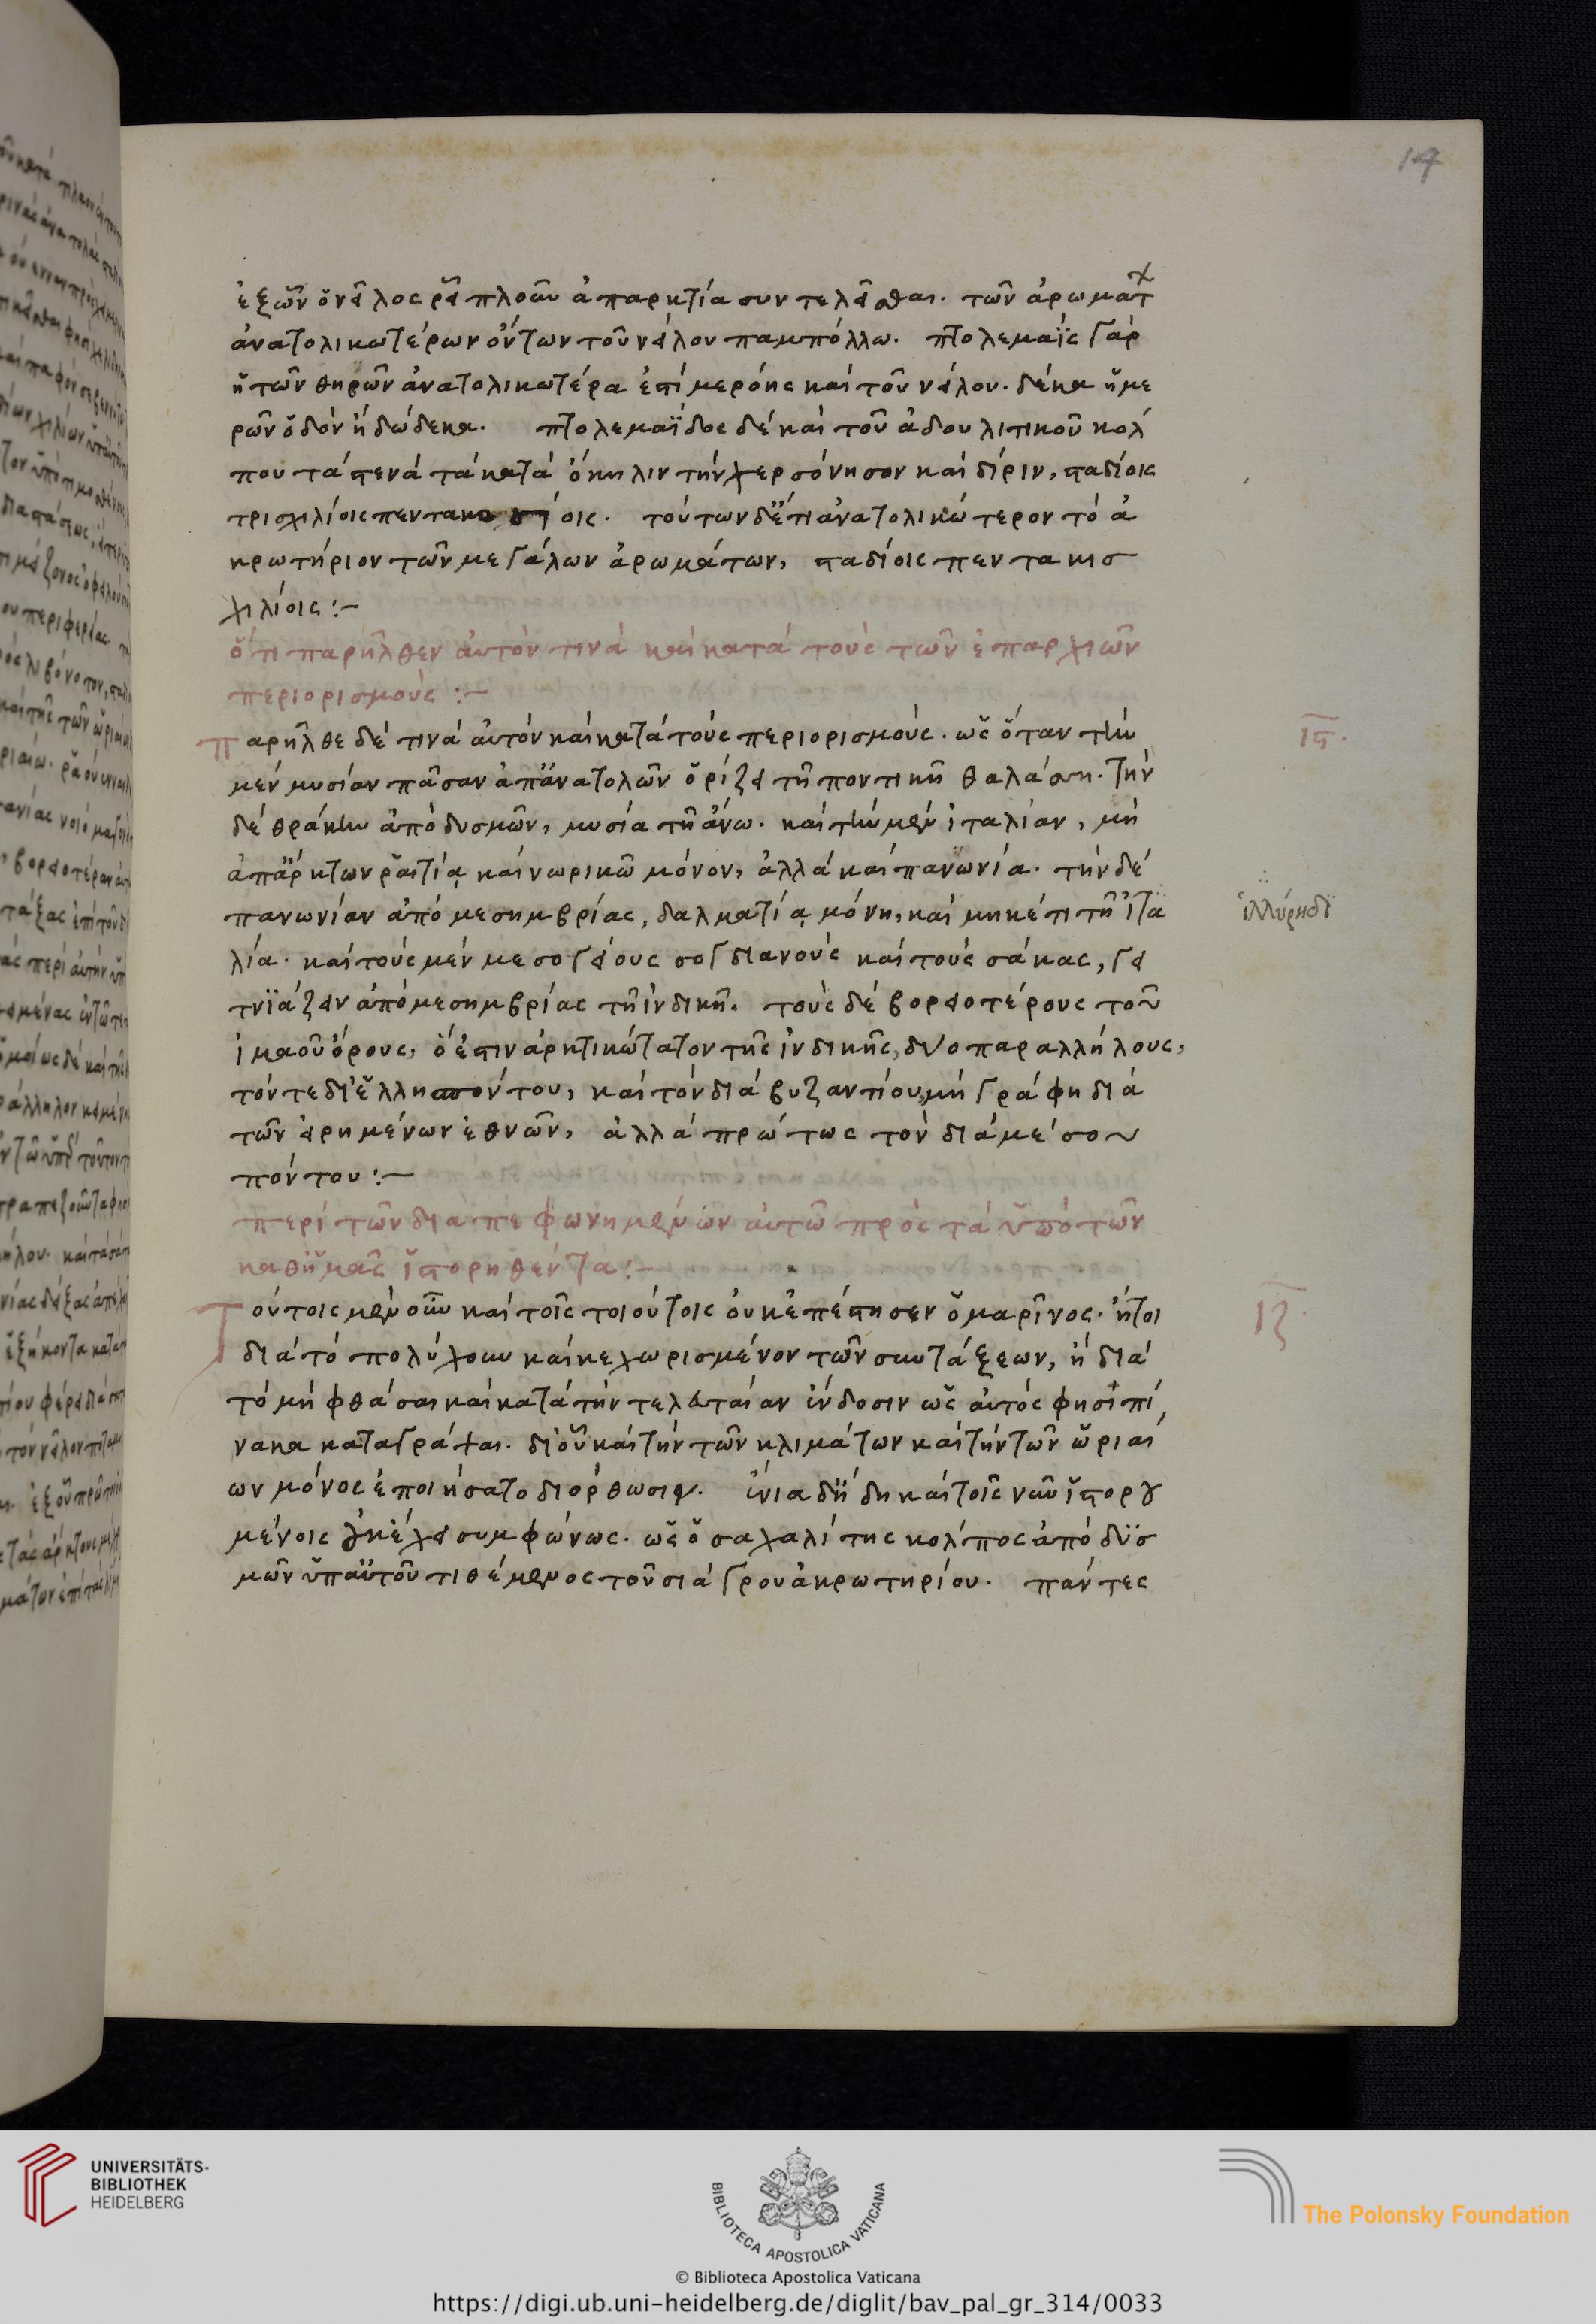 14
ἐξ ὧν ὁ νεῖλος ῥεῖ πλοῦν ἀπαρκτία συντελεῖσθαι. τῶν ἀρωμάτ
ἀνατολικωτέρων ὄντων τοῦ νείλου παμπόλλω. πτολεμαῒς γὰρ
ἡ τῶν θηρῶν ἀνατολικωτέρα ἐστὶ μερόης καὶ τοῦ νείλου. δέκα ἡμε
ρῶν ὁδὸν ἢ δώδεκα. πτολεμαΐδος δὲ καὶ τοῦ ἀδουλιτικοῦ κολ
που τὰ στενὰ τὰ κατὰ ὄκηλιν τὴν χερσόνησον καὶ δίριν, σταδίοις
τρισχιλίοις πεντακοσίοις. τούτων δ' ἔτι ἀνατολικώτερον τὸ ἀ
κρωτήριον τῶν μεγάλων ἀρωμάτων, σταδίοις πεντακισ
χιλίοις :–
ὅτι παρῆλθεν αὐτόν τινα καὶ κατὰ τοὺς τῶν ἐπαρχιῶν
περιορισμούς :–
παρῆλθε δέ τινα αὐτὸν καὶ κατὰ τοὺς περιορισμούς. ὡς ὅταν τὴν
ις.
μὲν μυσίαν πᾶσαν ἀπ' ἀνατολῶν ὁρίζει τῇ ποντικῇ θαλάσση. τὴν
δὲ θράκην ἀπὸ δυσμῶν, μυσία τῇ ἄνω. καὶ τὴν μὲν ἰταλίαν, μὴ
ἀπ' ἄρκτων ῥαιτίᾳ καὶ νωρικῶ μόνον, ἀλλὰ καὶ πανωνία. τὴν δὲ
πανωνίαν ἀπὸ μεσημβρίας, δαλματίᾳ μόνη, καὶ μηκέτι τῇ ἰτα
λία. καὶ τοὺς μὲν μεσογείους σογδιανοὺς καὶ τοὺς σάκας, γει
τνϊάζειν ἀπὸ μεσημβρίας τῇ ἰνδικῇ. τοὺς δὲ βορειοτέρους τοῦ
ἰμαοῦ ὄρους, ὅ ἐστιν ἀρκτικώτατον τῆς ἰνδικῆς, δύο παραλλήλους,
τόν τε δι' ἑλλησπόντου, καὶ τὸν διὰ βυζαντίου, μὴ γράφη διὰ
τῶν εἰρημένων ἐθνῶν, ἀλλὰ πρώτως τὸν διὰ μέσου
πόντου :–
περὶ τῶν διαπεφωνημένων αὐτῶ πρὸς τὰ ὑπὸ τῶν
καθ' ἡμᾶς ἱστορηθέντα :–
Τούτοις μὲν οὖν καὶ τοῖς τοιούτοις οὐκ ἐπέστησεν ὁ μαρῖνος. ἤτοι
ιζ.
διὰ τὸ πολύχουν καὶ κεχωρισμένον τῶν συντάξεων, ἢ διὰ
τὸ μὴ φθάσαι καὶ κατὰ τὴν τελευταίαν ἔκδοσιν ὡς αὐτός φησι πί
νακα καταγράψαι. δι' οὗ καὶ τὴν τῶν κλιμάτων καὶ τὴν τῶν ὡριαί
ων μόνος ἐποιήσατο διόρθωσιν. ἔνια δ' ἤδη καὶ τοῖς νῦν ἱστορου
μένοις οὐκ ἔχει συμφώνως. ὡς ὁ σαχαλίτης κολπος ἀπὸ δϋσ
μῶν ὑπ' αὐτοῦ τιθέμενος τοῦ σιάγρου ἀκρωτηρίου. πάντες
UNIVERSITÄTS-
BIBLIOTHEK
HEIDELBERG
BIBLIOTECA APOSTOLICA VATICANA
The Polonsky Foundation
© Biblioteca Apostolica Vaticana
https://digi.ub.uni-heidelberg.de/diglit/bav_pal_gr_314/0033